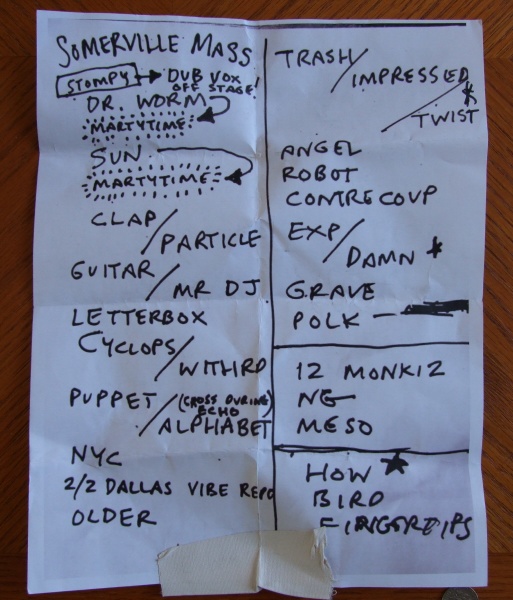 SOMERVILLE MASS
STOMPY → DUB VOX
OFF STAGE!
DR. WORM
MARTYTIME
SUN
MARTYTIME
CLAP/
PARTICLE
GUITAR/
MR DJ
LETTERBOX
CYCLOPS/
WITHRD
PUPPET/(CROSS DURING
ECHO)
ALPHABET
NYC
2/2 DALLAS VIBE REPO
OLDER
TRASH/
IMPRESSED/
TWIST
ANGEL
ROBOT
CONTRECOUP
EXP/
DAMN *
GRAVE
POLK —
12 MONKIZ
NG
MESO
HOW ★
BIRD
FINGERTIPS